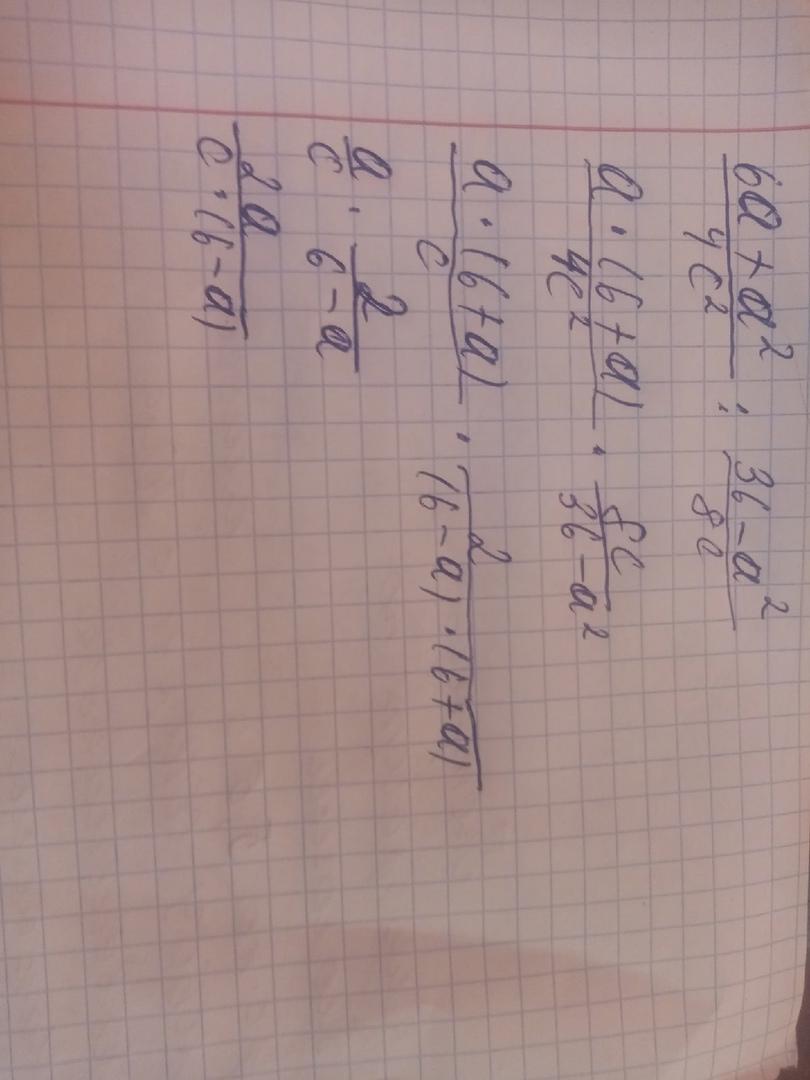 (6a + a²)/(4c²) : (36 - a²)/(8c)
(a · (6 + a))/(4c²) · (8c)/(36 - a²)
(a · (6 + a))/(c) · (2)/((6 - a) · (6 + a))
a/c · 2/(6 - a)
(2a)/(c · (6 - a))